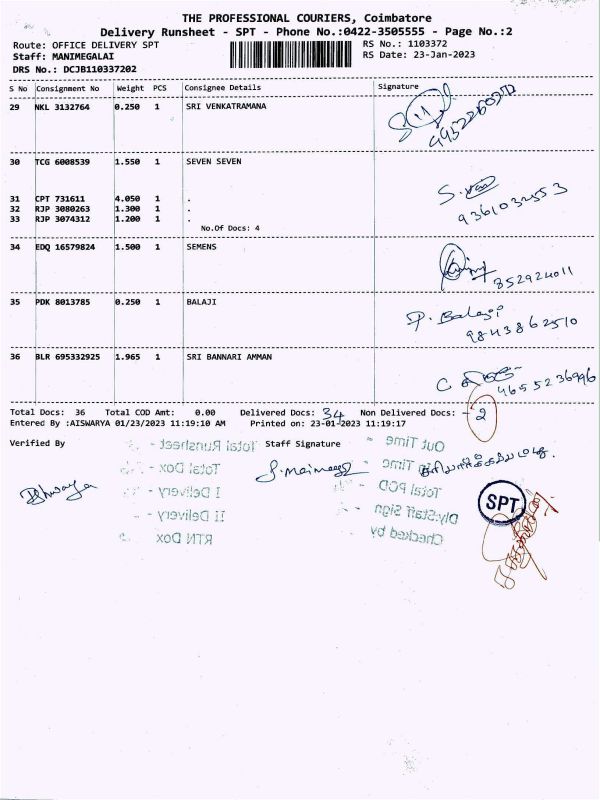 THE PROFESSIONAL COURIERS, Coimbatore
Delivery Runsheet - SPT - Phone No.:0422-3505555 - Page No.:2
Route: OFFICE DELIVERY SPT RS No.: 1103372
Staff: MANIMEGALAI RS Date: 23-Jan-2023
DRS No.: DCJB110337202
S No Consignment No Weight PCS Consignee Details Signature
29 NKL 3132764 0.250 1 SRI VENKATRAMANA
30 TCG 6008539 1.550 1 SEVEN SEVEN
31 CPT 731611 4.050 1 .
32 RJP 3080263 1.300 1 .
33 RJP 3074312 1.200 1 .
No.Of Docs: 4
9361032553
34 EDQ 16579824 1.500 1 SEMENS
852924011
35 PDK 8013785 0.250 1 BALAJI
P. Balaji
9843862510
36 BLR 695332925 1.965 1 SRI BANNARI AMMAN
Total Docs: 36 Total COD Amt: 0.00 Delivered Docs: 34 Non Delivered Docs: - 2
Entered By :AISWARYA 01/23/2023 11:19:10 AM Printed on: 23-01-2023 11:19:17
Verified By Staff Signature
Total Runsheet - Out Time -
Total Dox - In Time -
I Delivery - Total POD -
II Delivery - Dly:Staff Sign
RTN Dox Checked by
SPT